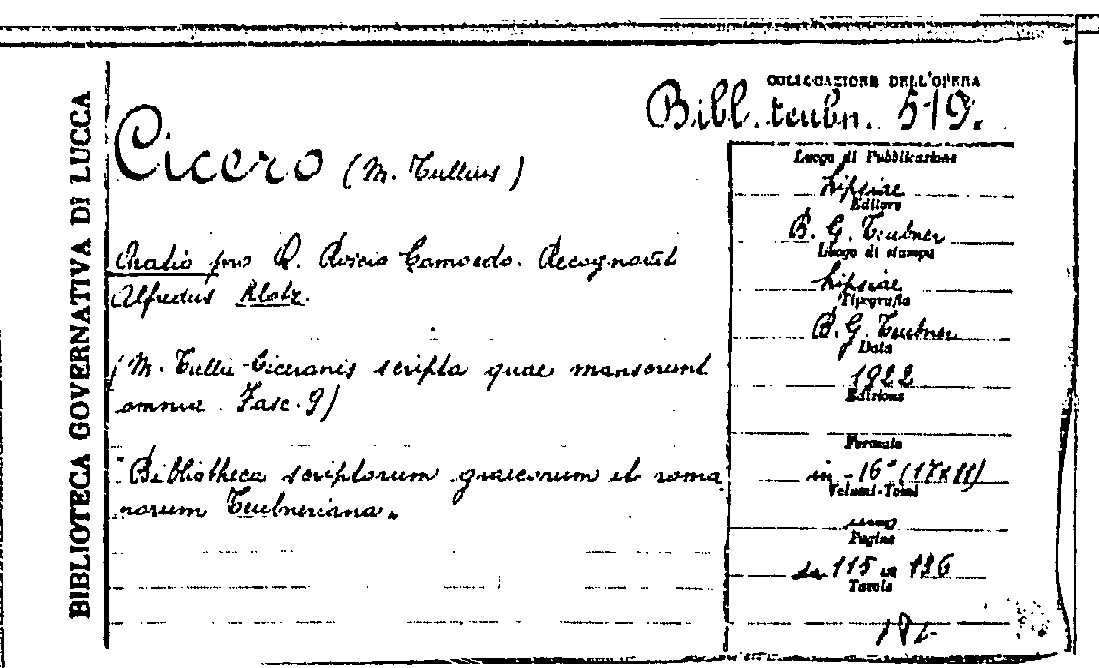 BIBLIOTECA GOVERNATIVA DI LUCCA
COLLOCAZIONE DELL'OPERA
Bibl. teubn. 519.
Cicero (M. Tullius)
Oratio pro Q. Roscio Comoedo. Recognovit
Alfredus Klotz.
(M. Tulli Ciceronis scripta quae manserunt
omnia. Fasc. 9)
"Bibliotheca scriptorum graecorum et roma
norum Teubneriana„
Luogo di Pubblicazione
Lipsiae
Editore
B. G. Teubner
Luogo di stampa
Lipsiae
Tipografia
B. G. Teubner
Data
1922
Edizione
Formato
in-16° (17x11)
Volumi-Tomi
uno
Pagine
da 115 a 136
Tavole